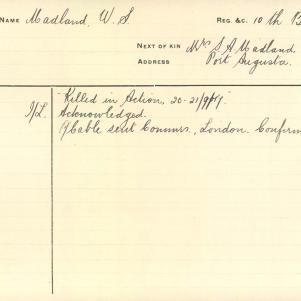 NAME Madland, W. S. REG. &C. 10th B
NEXT OF KIN Mrs S. A. Madland.
ADDRESS Port Augusta.
"Killed in Action, 20-21/9/17".
I/L. Acknowledged.
Cable sent Commrs., London. Confirm